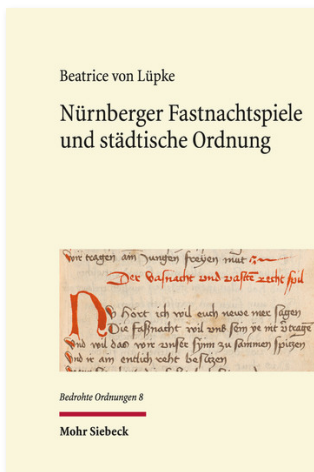 Beatrice von Lüpke
Nürnberger Fastnachtspiele
und städtische Ordnung
wir tragen am Jungen freyen mut
Der vasnacht und vasten recht spil
Nu Hort ich wil euch newe mer sagen
Die faßnacht wil uns sein ye nit vtrage
Und wil das wir unser synn zu samen spitzen
Und ir am entlich recht besitzen
Bedrohte Ordnungen 8
Mohr Siebeck